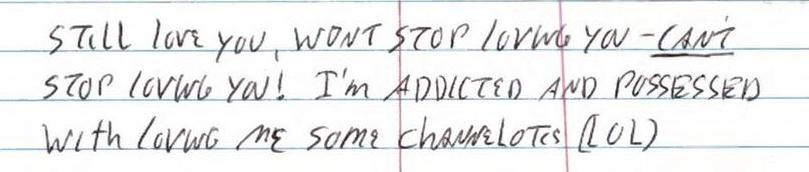 STILL love you, WONT STOP loving YOU - CAN'T
STOP loving YOU! I'm ADDICTED AND POSSESSED
With loving ME some channelotes (LOL)